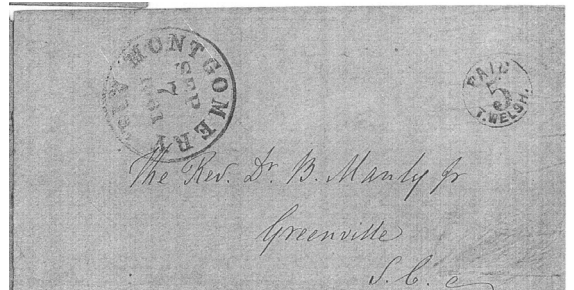 MONTGOMERY ALA
SEP
7
1861
PAID
5
T. WELSH.
The Rev. Dr. B. Manly Jr
Greenville
S. C.